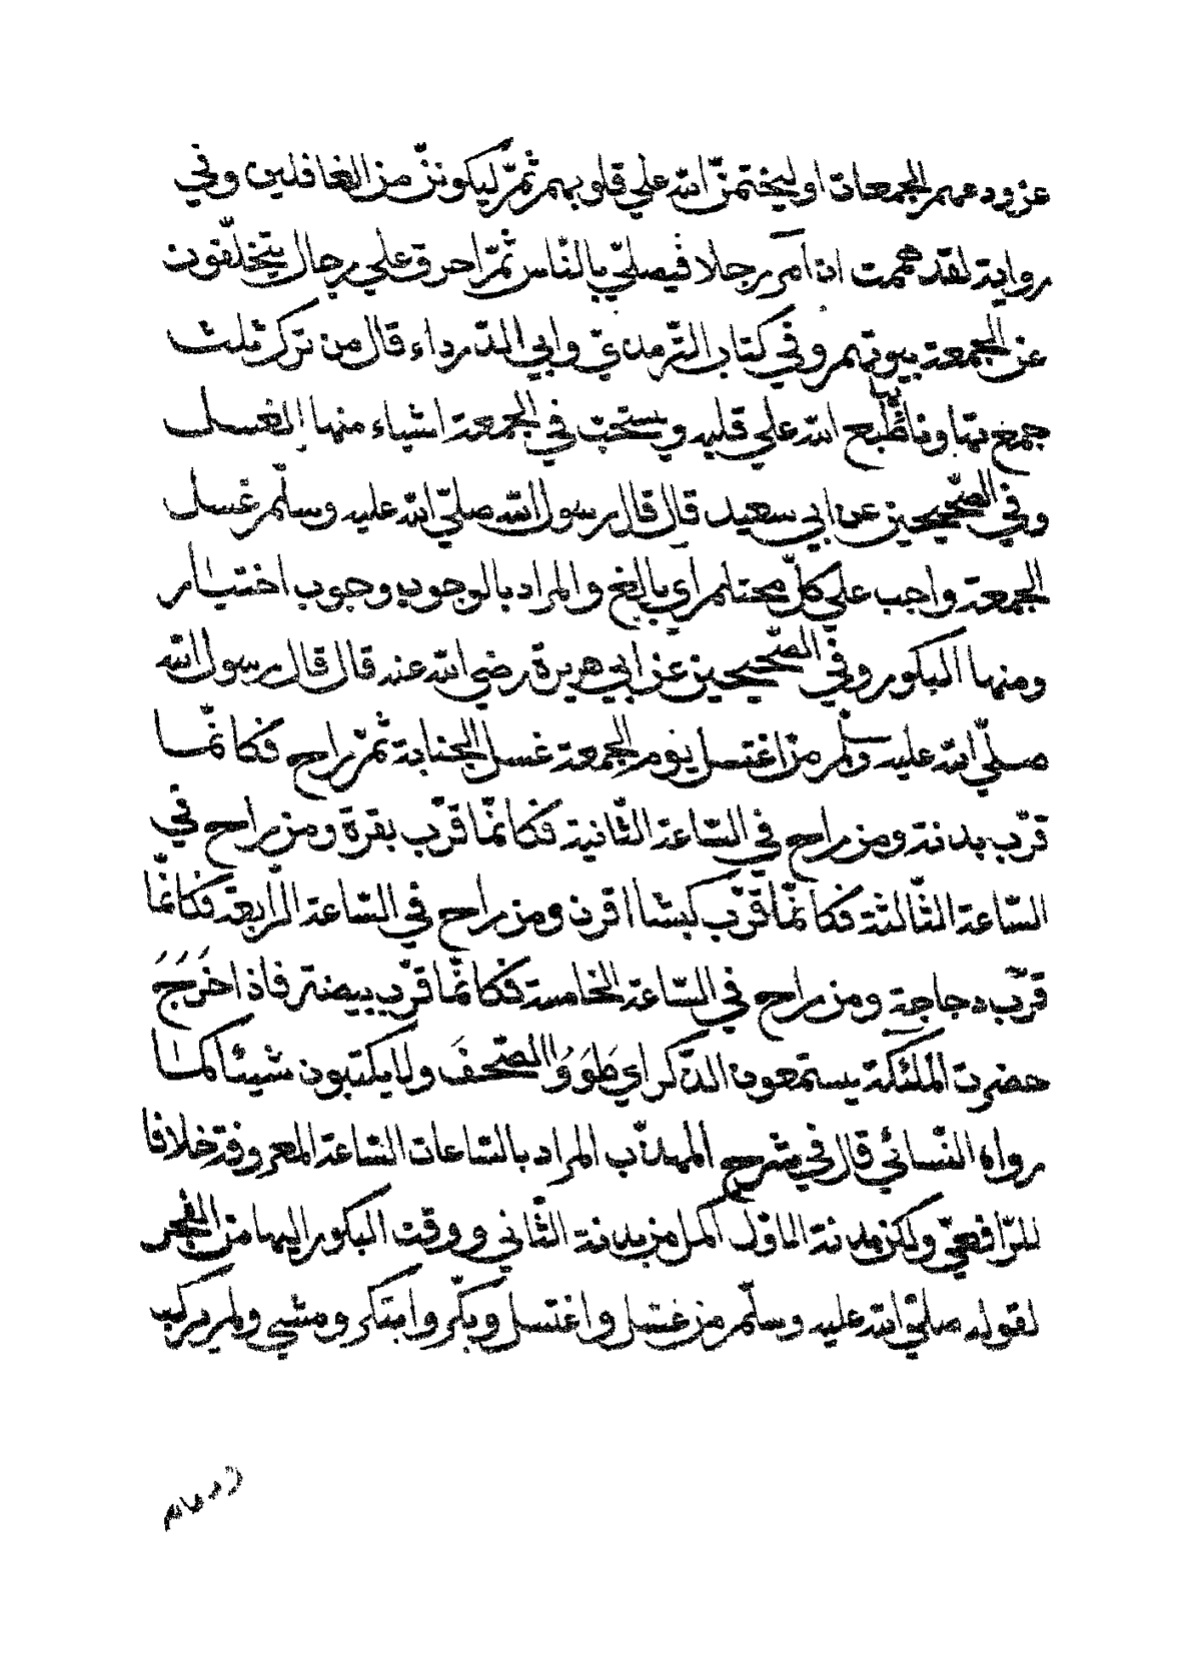 عن ودعهم الجمعات او ليختمنّ الله علي قلوبهم ثمّ ليكوننّ من الغافلين وفي
رواية لقد هممت ان آمر رجلا فيصلّي بالنّاس ثمّ احرق علي رجال يتخلّفون
عن الجمعة بيوتهم وفي كتاب التّرمذيّ وابي الدّرداء قال من ترك ثلث
جمع تهاونا طبع الله علي قلبه ويستحبّ في الجمعة اشياء منها الغسل
وفي الصّحيحين عن ابي سعيد قال قال رسول الله صلّي الله عليه وسلّم غسل
الجمعة واجب علي كلّ محتلم اي بالغ والمراد بالوجوب وجوب اختيار
ومنها البكور وفي الصّحيحين عن ابي هريرة رضي الله عنه قال قال رسول الله
صلّي الله عليه وسلّم من اغتسل يوم الجمعة غسل الجنابة ثمّ راح فكانّما
قرّب بدنة ومن راح في السّاعة الثّانية فكانّما قرّب بقرة ومن راح في
السّاعة الثّالثة فكانّما قرّب كبشا اقرن ومن راح في السّاعة الرّابعة فكانّما
قرّب دجاجة ومن راح في السّاعة الخامسة فكانّما قرّب بيضة فاذا خَرَجَ
حضرت الملئكة يستمعون الذّكر اي طَوَوُا الصّحفَ ولا يكتبون شيئا كما
رواه النّسائي قال في شرح المهذّب المراد بالسّاعات السّاعة المعروفة خلافا
للرّافعيّ ولكن بدنة الاوّل اكمل من بدنة الثّاني ووقت البكور اليها من الفجر
لقوله صلّي الله عليه وسلّم من غسّل واغتسل وبكّر وابتكر ومشي ولم يركب